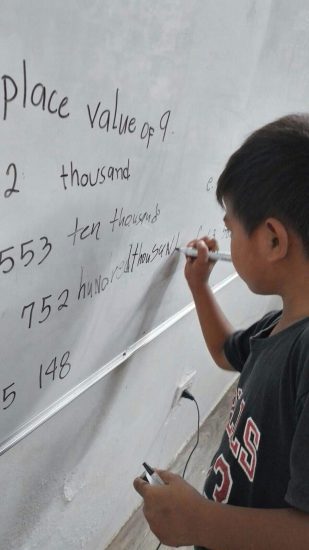 place value of 9.
2 thousand
553 ten thousands
752 hundred thousand
5 148
e.